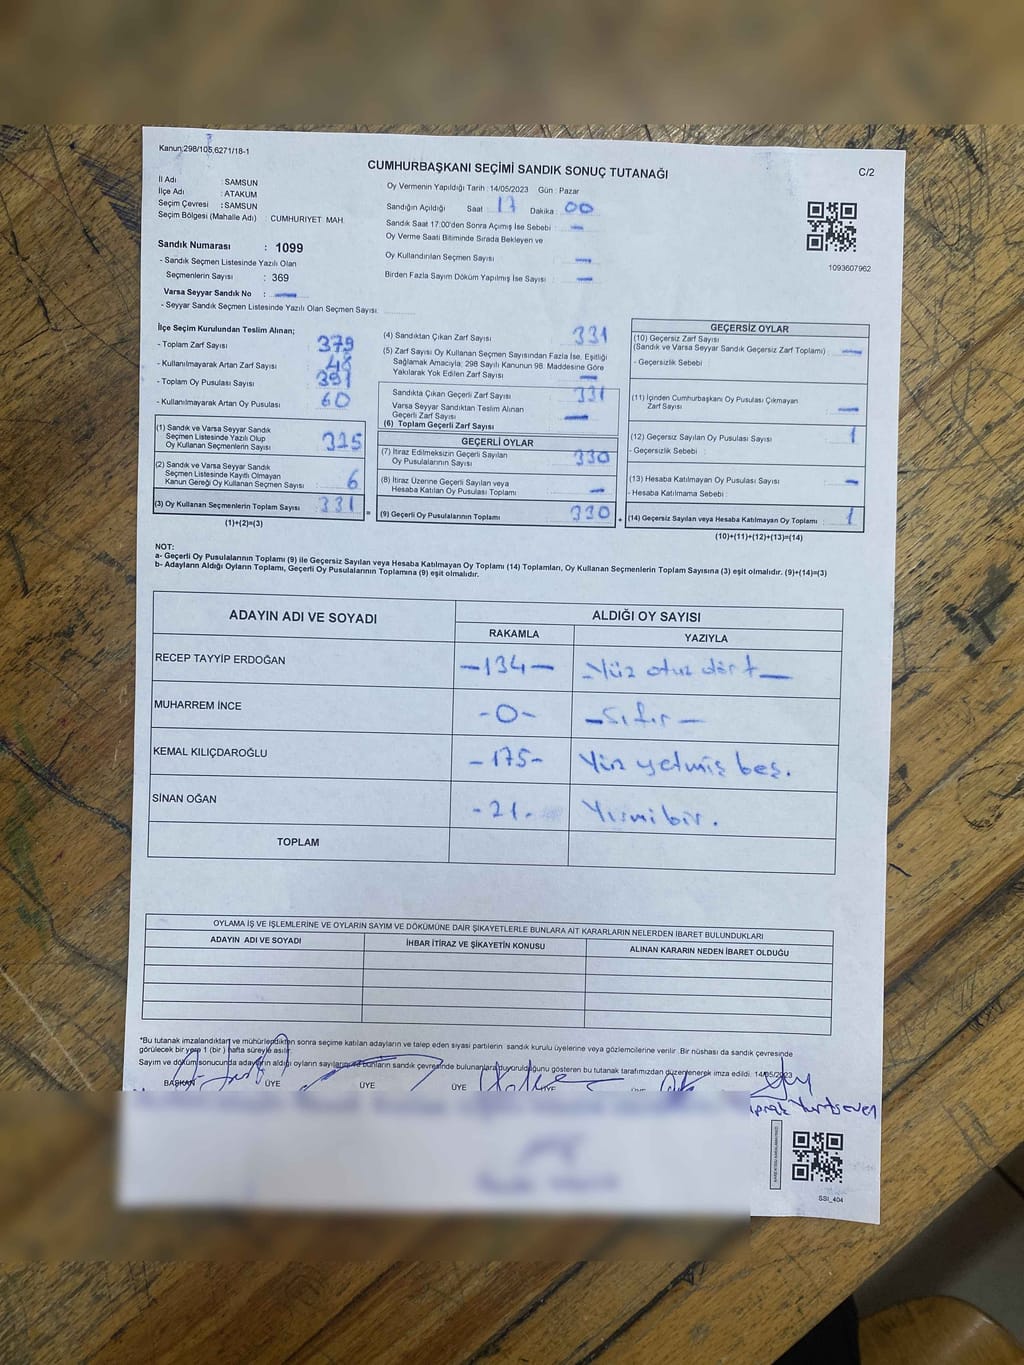 Kanun:298/105,6271/18-1
CUMHURBAŞKANI SEÇİMİ SANDIK SONUÇ TUTANAĞI
C/2
İl Adı : SAMSUN
İlçe Adı : ATAKUM
Seçim Çevresi : SAMSUN
Seçim Bölgesi (Mahalle Adı) : CUMHURİYET MAH.
Oy Vermenin Yapıldığı Tarih : 14/05/2023 Gün : Pazar
Sandığın Açıldığı Saat : 17 Dakika : 00
Sandık Saat 17.00'den Sonra Açımış İse Sebebi : —
Oy Verme Saati Bitiminde Sırada Bekleyen ve
Oy Kullandırılan Seçmen Sayısı : —
Birden Fazla Sayım Döküm Yapılmış İse Sayısı : —
1093607962
Sandık Numarası : 1099
- Sandık Seçmen Listesinde Yazılı Olan
Seçmenlerin Sayısı : 369
Varsa Seyyar Sandık No : —
- Seyyar Sandık Seçmen Listesinde Yazılı Olan Seçmen Sayısı:
İlçe Seçim Kurulundan Teslim Alınan;
- Toplam Zarf Sayısı : 379
- Kullanılmayarak Artan Zarf Sayısı : 48
- Toplam Oy Pusulası Sayısı : 391
- Kullanılmayarak Artan Oy Pusulası : 60
(1) Sandık ve Varsa Seyyar Sandık
Seçmen Listesinde Yazılı Olup
Oy Kullanan Seçmenlerin Sayısı : 325
(2) Sandık ve Varsa Seyyar Sandık
Seçmen Listesinde Kayıtlı Olmayan
Kanun Gereği Oy Kullanan Seçmen Sayısı : 6
(3) Oy Kullanan Seçmenlerin Toplam Sayısı : 331
(1)+(2)=(3)
(4) Sandıktan Çıkan Zarf Sayısı : 331
(5) Zarf Sayısı Oy Kullanan Seçmen Sayısından Fazla İse, Eşitliği
Sağlamak Amacıyla; 298 Sayılı Kanunun 98. Maddesine Göre
Yakılarak Yok Edilen Zarf Sayısı : —
Sandıkta Çıkan Geçerli Zarf Sayısı : 331
Varsa Seyyar Sandıktan Teslim Alınan
Geçerli Zarf Sayısı : —
(6) Toplam Geçerli Zarf Sayısı
GEÇERLİ OYLAR
(7) İtiraz Edilmeksizin Geçerli Sayılan
Oy Pusulalarının Sayısı : 330
(8) İtiraz Üzerine Geçerli Sayılan veya
Hesaba Katılan Oy Pusulası Toplamı : —
(9) Geçerli Oy Pusulalarının Toplamı : 330
GEÇERSİZ OYLAR
(10) Geçersiz Zarf Sayısı
(Sandık ve Varsa Seyyar Sandık Geçersiz Zarf Toplamı) : —
- Geçersizlik Sebebi :
(11) İçinden Cumhurbaşkanı Oy Pusulası Çıkmayan
Zarf Sayısı : —
(12) Geçersiz Sayılan Oy Pusulası Sayısı : 1
- Geçersizlik Sebebi :
(13) Hesaba Katılmayan Oy Pusulası Sayısı : —
- Hesaba Katılmama Sebebi :
(14) Geçersiz Sayılan veya Hesaba Katılmayan Oy Toplamı : 1
(10)+(11)+(12)+(13)=(14)
NOT:
a- Geçerli Oy Pusulalarının Toplamı (9) ile Geçersiz Sayılan veya Hesaba Katılmayan Oy Toplamı (14) Toplamları, Oy Kullanan Seçmenlerin Toplam Sayısına (3) eşit olmalıdır. (9)+(14)=(3)
b- Adayların Aldığı Oyların Toplamı, Geçerli Oy Pusulalarının Toplamına (9) eşit olmalıdır.
ADAYIN ADI VE SOYADI ALDIĞI OY SAYISI
RAKAMLA YAZIYLA
RECEP TAYYİP ERDOĞAN —134— —Yüz otuz dört—
MUHARREM İNCE -0- —Sıfır—
KEMAL KILIÇDAROĞLU -175- Yüz yetmiş beş.
SİNAN OĞAN -21- Yirmi bir.
TOPLAM
OYLAMA İŞ VE İŞLEMLERİNE VE OYLARIN SAYIM VE DÖKÜMÜNE DAİR ŞİKAYETLERLE BUNLARA AİT KARARLARIN NELERDEN İBARET BULUNDUKLARI
ADAYIN ADI VE SOYADI İHBAR İTİRAZ VE ŞİKAYETİN KONUSU ALINAN KARARIN NEDEN İBARET OLDUĞU
*Bu tutanak imzalandıktan ve mühürlendikten sonra seçime katılan adayların ve talep eden siyasi partilerin sandık kurulu üyelerine veya gözlemcilerine verilir .Bir nüshası da sandık çevresinde
görülecek bir yere 1 (bir ) hafta süreyle asılır.
Sayım ve döküm sonucunda adayların aldığı oyların sayılarını ve bunların sandık çevresinde bulunanlara duyurulduğunu gösteren bu tutanak tarafımızdan düzenlenerek imza edildi. 14/05/2023
BAŞKAN ÜYE ÜYE ÜYE ÜYE
Yurtseven
SSI_404